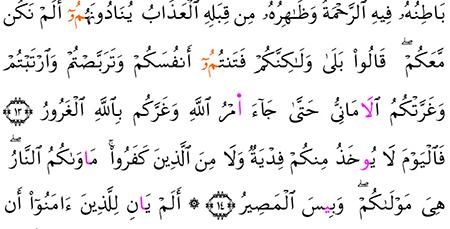 بَاطِنُهُۥ فِيهِ الرَّحْمَةُ وَظَٰهِرُهُۥ مِن قِبَلِهِ الْعَذَابُ يُنَادُونَهُمُۥٓ أَلَمْ نَكُن
مَّعَكُمْۖ قَالُواْ بَلَىٰ وَلَٰكِنَّكُمْ فَتَنتُمُۥٓ أَنفُسَكُمْ وَتَرَبَّصْتُمْ وَارْتَبْتُمْ
وَغَرَّتْكُمُ الَامَانِىُّ حَتَّىٰ جَآءَ امْرُ اللَّهِ وَغَرَّكُم بِاللَّهِ الْغَرُورُ ﴿١٣﴾
فَالْيَوْمَ لَا يُوخَذُ مِنكُمْ فِدْيَةٌ وَلَا مِنَ الَّذِينَ كَفَرُواْۚ مَاوَىٰكُمُ النَّارُۖ
هِىَ مَوْلَىٰكُمْۖ وَبِيسَ الْمَصِيرُ ﴿١٤﴾ ۞ أَلَمْ يَانِ لِلَّذِينَ ءَامَنُوٓاْ أَن